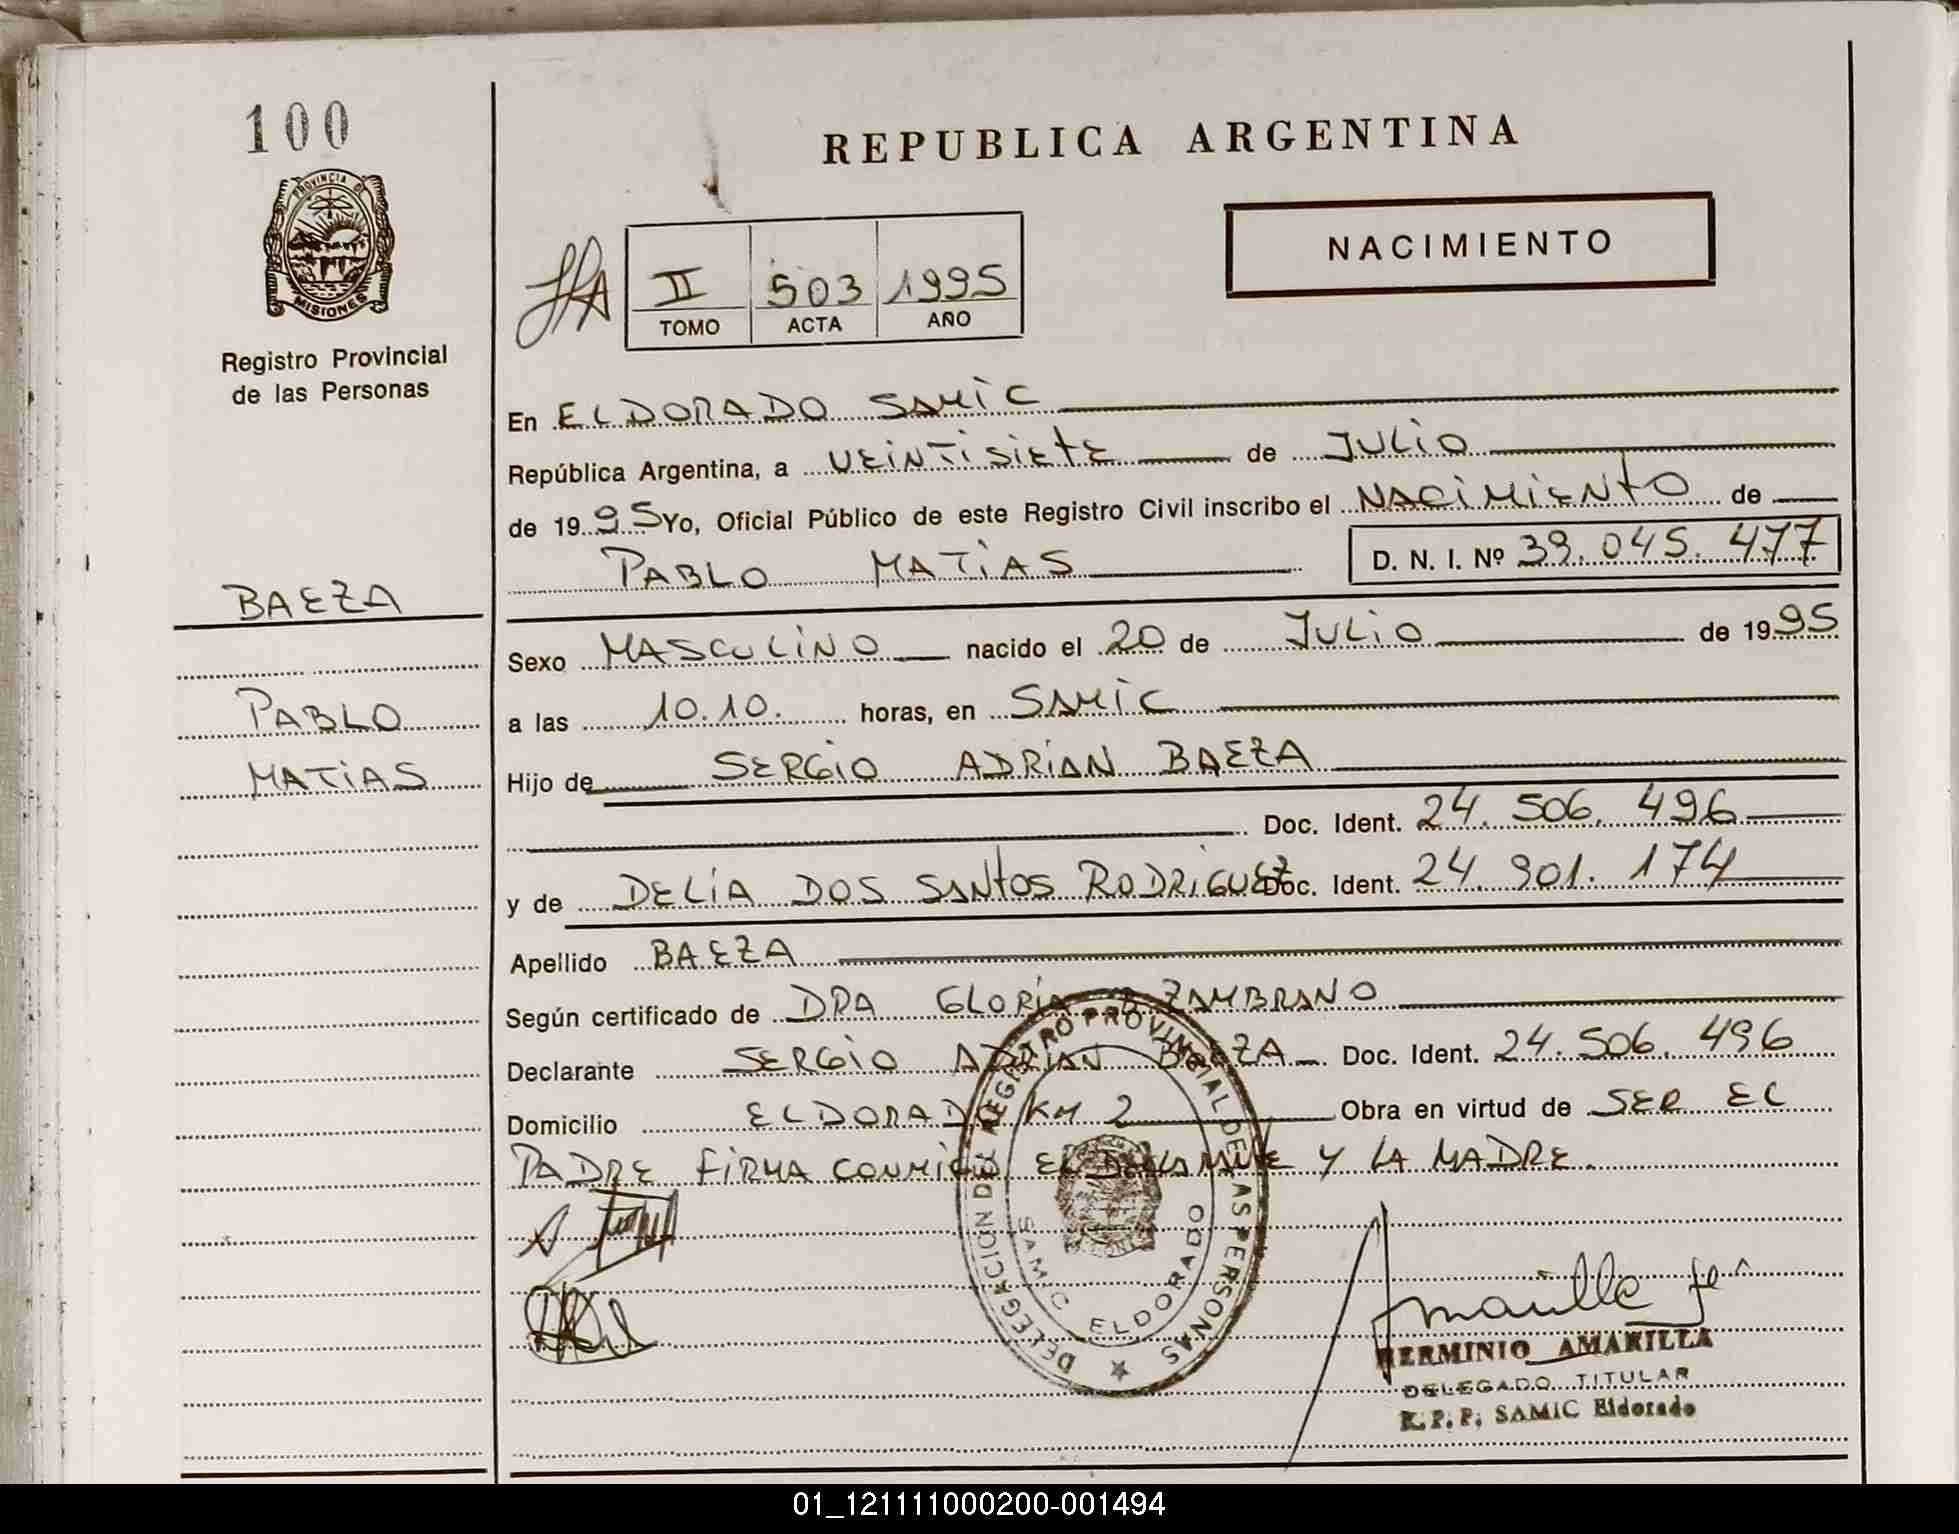 100
PROVINCIA DE
MISIONES
Registro Provincial
de las Personas
BAEZA
PABLO
MATIAS
REPUBLICA ARGENTINA
NACIMIENTO
II 503 1995
TOMO ACTA AÑO
En ELDORADO SAMIC
República Argentina, a VEINTISIETE de JULIO
de 1995 Yo, Oficial Público de este Registro Civil inscribo el NACIMIENTO de
PABLO MATIAS D. N. I. Nº 39.045.477
Sexo MASCULINO nacido el 20 de JULIO de 1995
a las 10.10. horas, en SAMIC
Hijo de SERGIO ADRIAN BAEZA
Doc. Ident. 24.506.496
y de DELIA DOS SANTOS RODRIGUEZ Doc. Ident. 24.901.174
Apellido BAEZA
Según certificado de DRA GLORIA ZAMBRANO
Declarante SERGIO ADRIAN BAEZA Doc. Ident. 24.506.496
Domicilio ELDORADO KM 2 Obra en virtud de SER EL
PADRE FIRMA CONMIGO EL DECLARANTE Y LA MADRE
DELEGACION DEL REGISTRO PROVINCIAL DE LAS PERSONAS
SAMIC ELDORADO
HERMINIO AMARILLA
DELEGADO TITULAR
R. P. P. SAMIC Eldorado
01_121111000200-001494